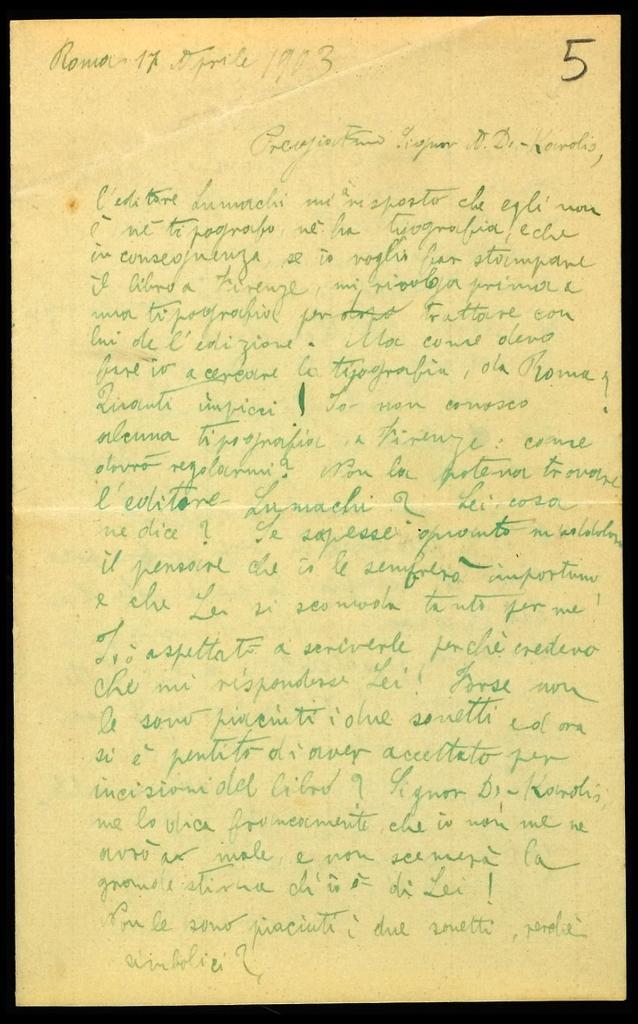 Roma 17 Aprile 1903
5
Pregiatimo Signor A. De-Karolis,
l'editore Lumachi mi à risposto che egli non
è nè tipografo, nè ha tipografia, e che
in conseguenza, se io voglio far stampare
il libro a Firenze, mi rivolga prima a
una tipografia per dopo trattare con
lui de l'edizione. Ma come devo
fare io a cercare la tipografia, da Roma?
Quanti impicci! Io non conosco
alcuna tipografia a Firenze: come
dovrò regolarmi? Non la poteva trovare
l'editore Lumachi? Lei cosa
ne dice? Se sapesse quanto mi
il pensare che io le sembrerò importuno
e che Lei si scomoda tanto per me!
Io ò aspettato a scriverle perchè credevo
che mi rispondesse Lei! Forse non
le sono piaciuti i due sonetti ed ora
si è pentito di aver accettato per
incisioni del libro? Signor De-Karolis,
me lo dica francamente, che io non me ne
avrò a male, e non scemerà la
grande stima ch'io ò di Lei!
Non le sono piaciuti i due sonetti, perchè
simbolici?